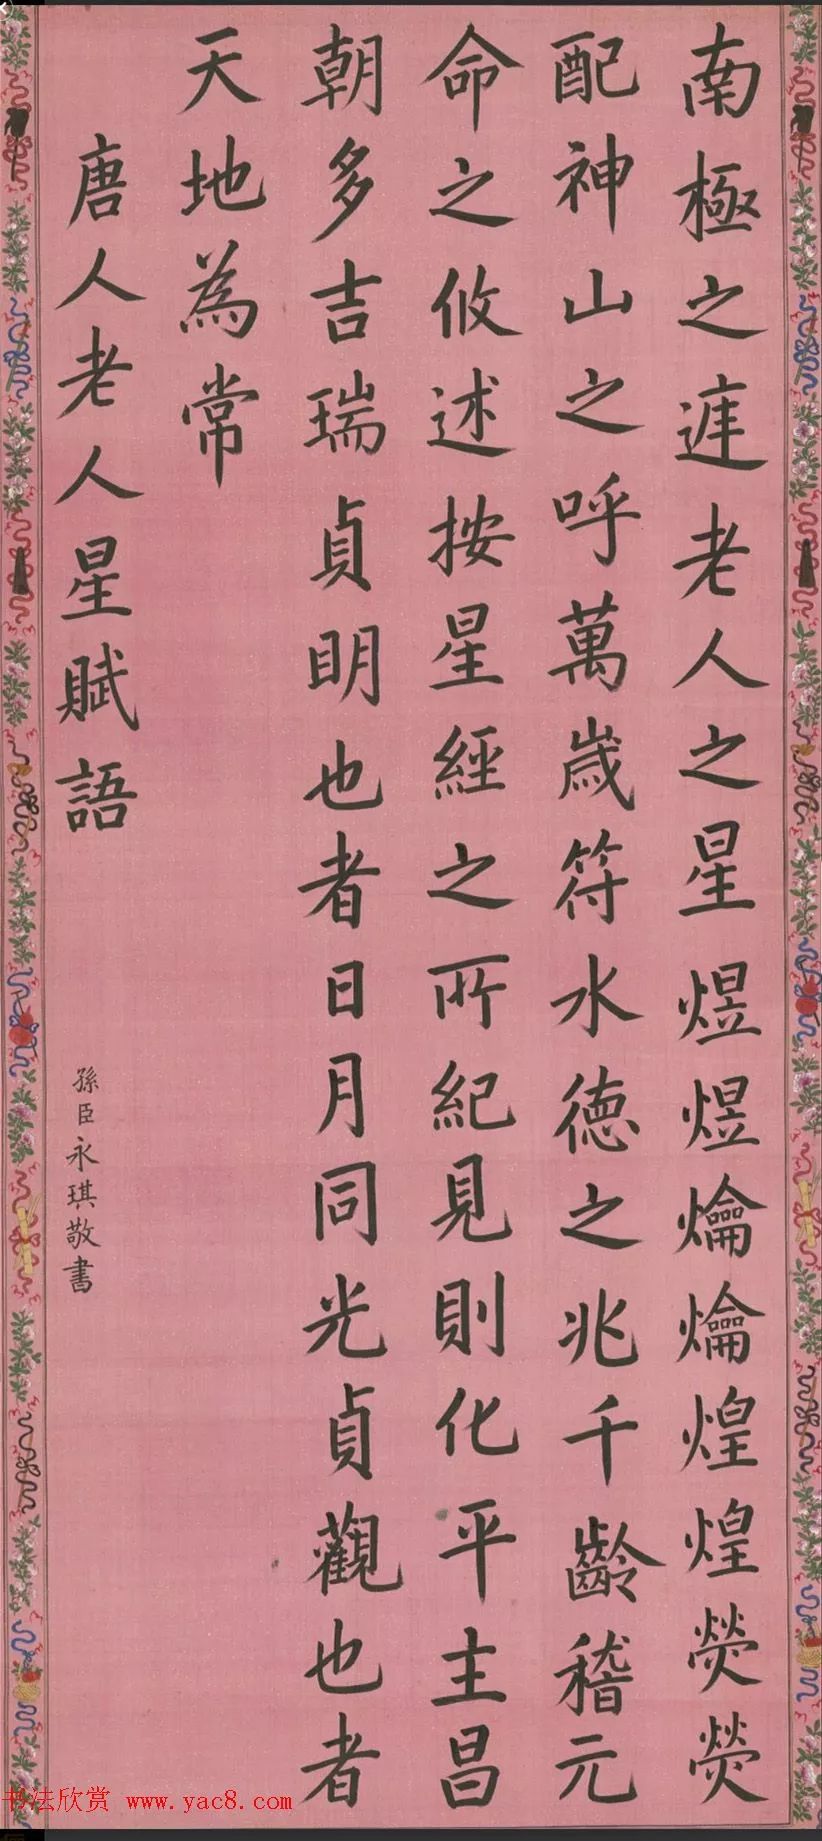 南極之𤶊老人之星煜煜爚爚煌煌熒熒
配神山之呼萬歲符水德之兆千齡稽元
命之攸述按星經之所紀見則化平主昌
朝多吉瑞貞明也者日月同光貞觀也者
天地為常
唐人老人星賦語
孫臣永琪敬書
书法欣赏 www.yac8.com